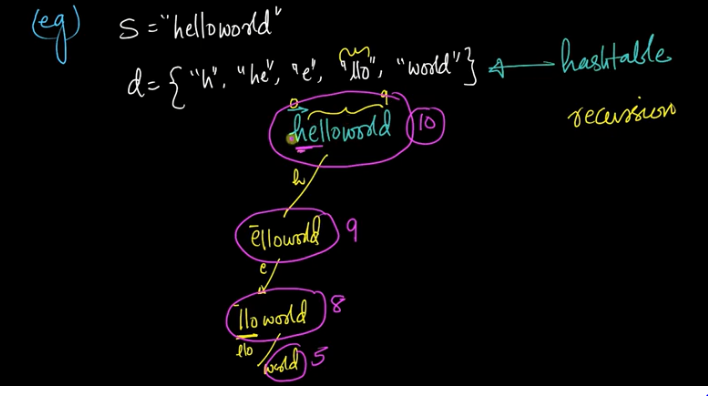 (eg) S = "helloworld"
d = { "h", "he", "e", "llo", "world" } hashtable
recursion
0 9
helloworld 10
h
elloworld 9
e
lloworld 8
llo
world 5